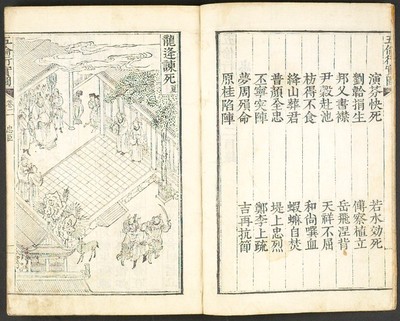 演芬快死 若水効死
劉韐捐生 傅察植立
邦乂書襟 岳飛涅背
尹穀赴池 天祥不屈
枋得不食 和尙噀血
絳山葬君 蝦蟆自焚
普顏全忠 堤上忠烈
丕寧突陣 鄭李上疏
夢周殞命 吉再抗節
原桂陷陣
龍逄諫死 夏
五倫行實圖